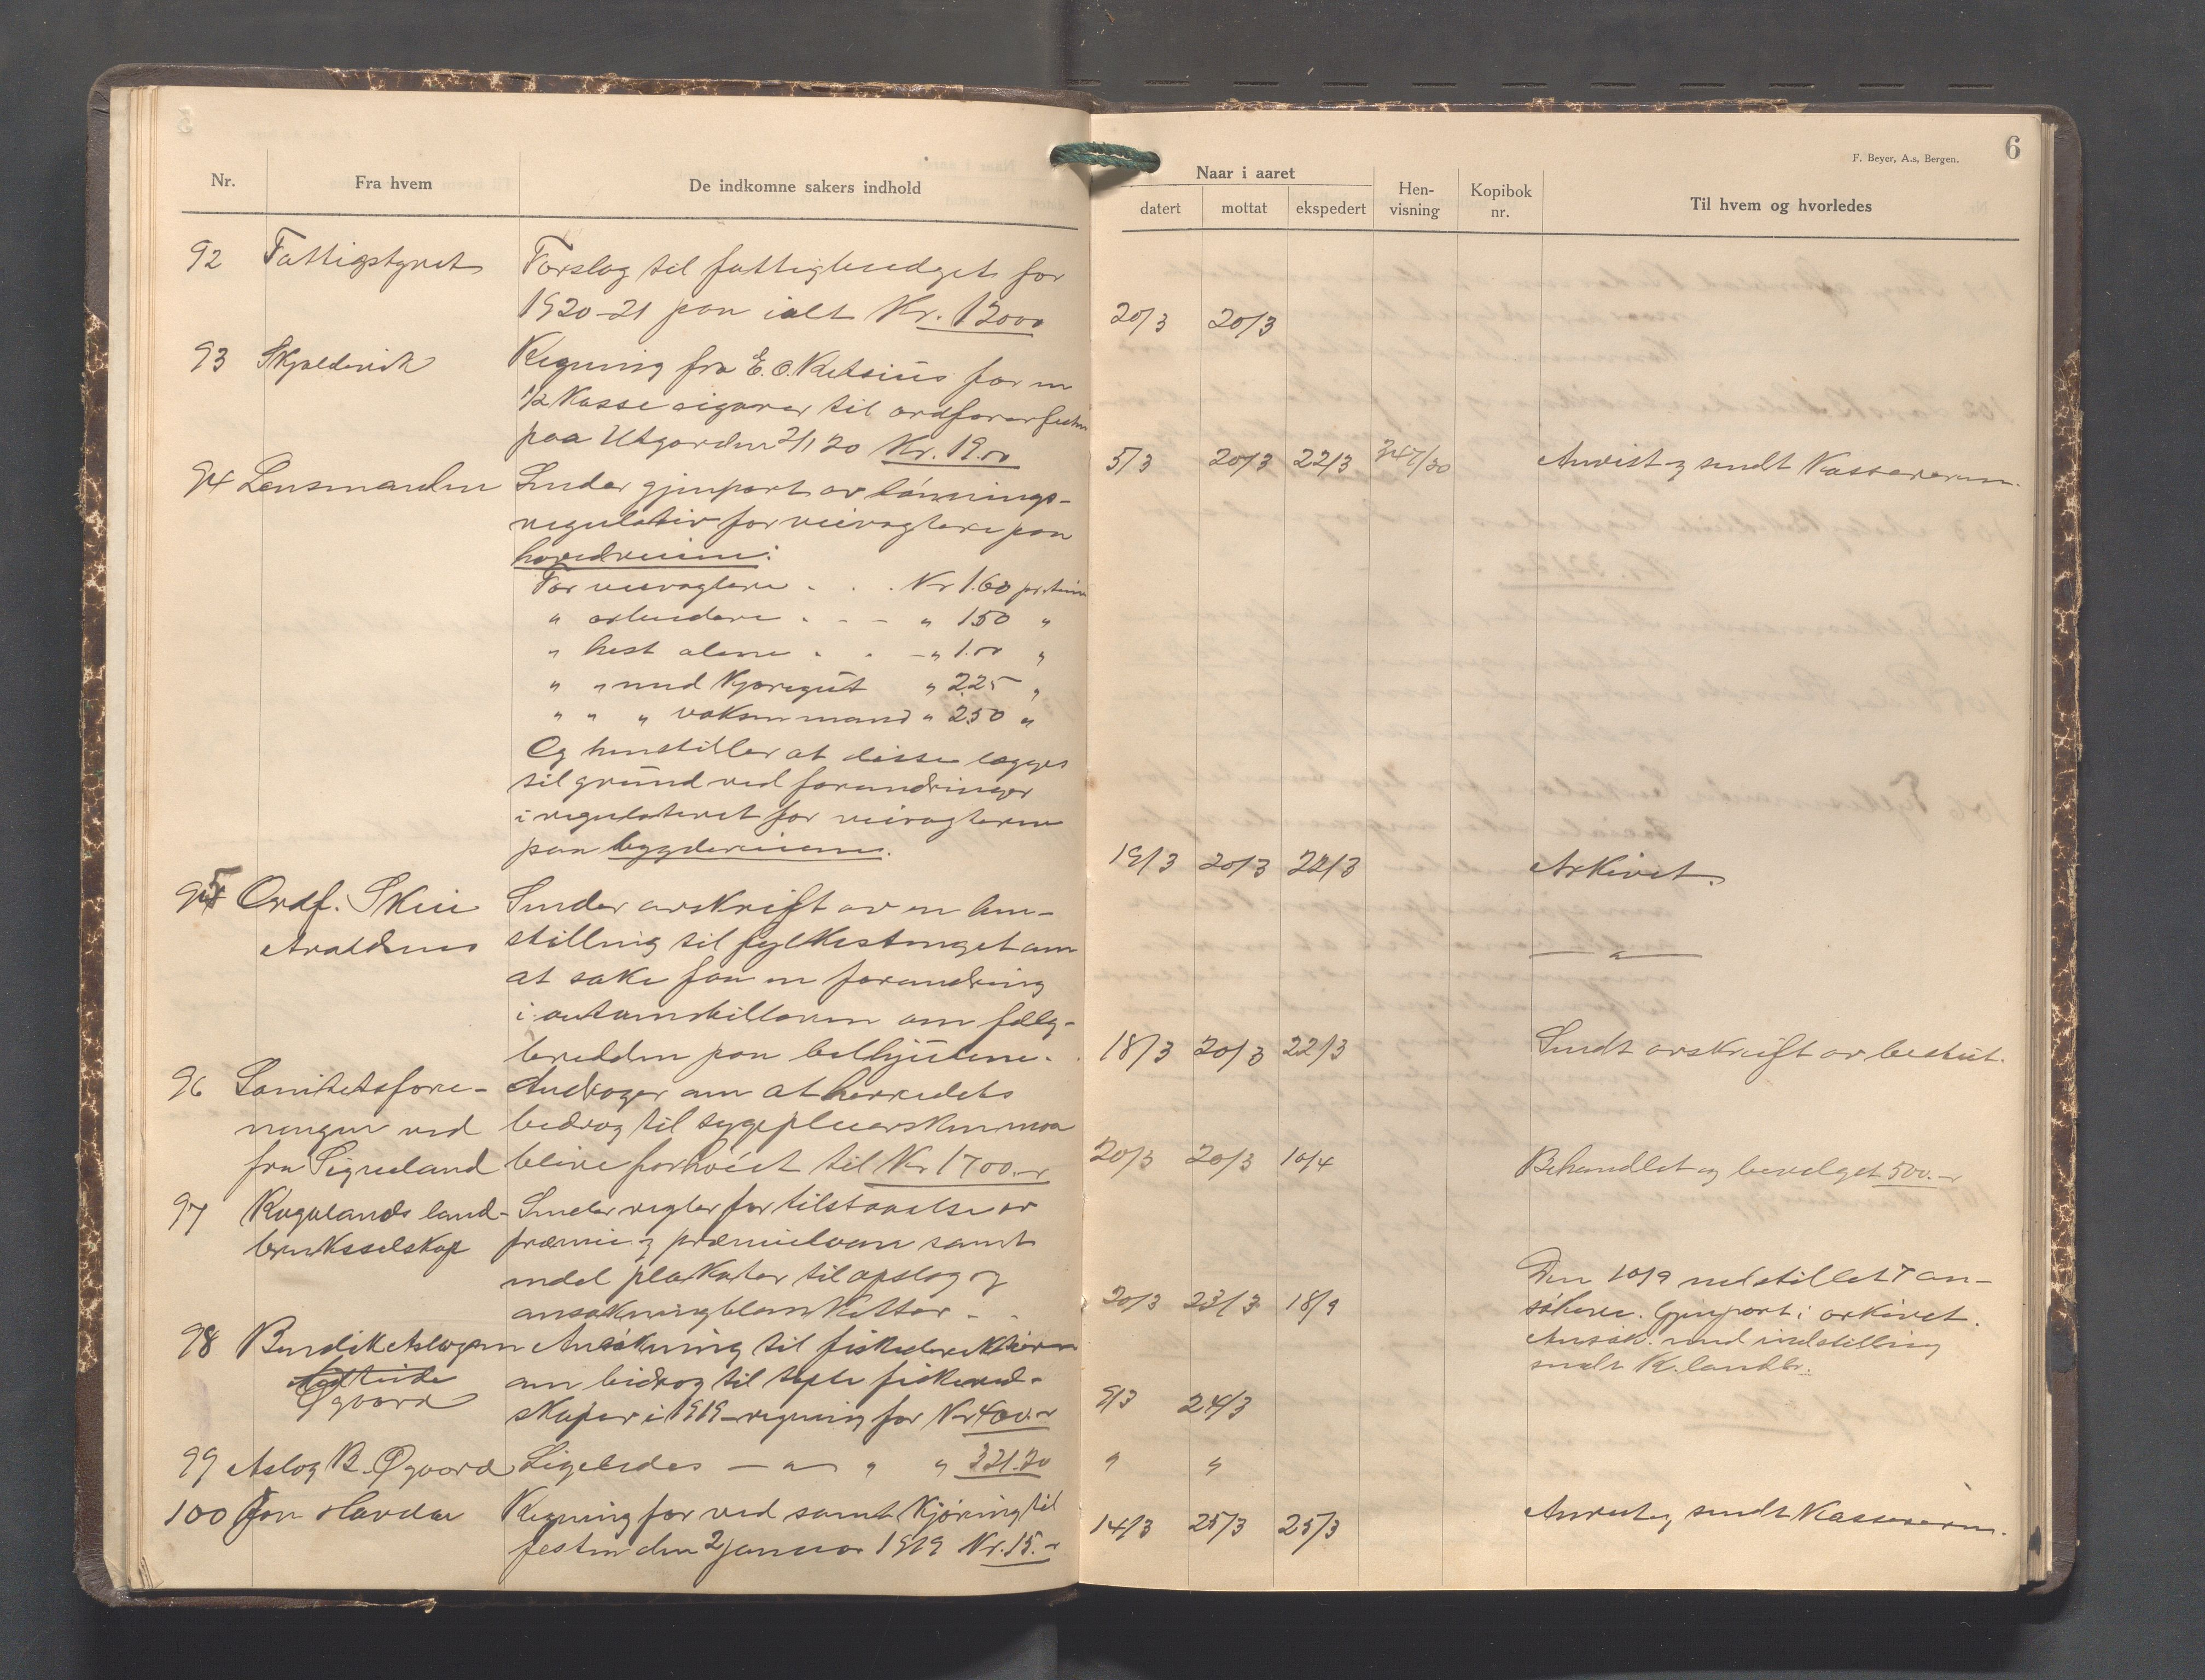 6
F. Beyer, A.s, Bergen.
Nr. Fra hvem De indkomne sakers indhold
Naar i aaret
datert mottat ekspedert Hen-visning Kopibok nr. Til hvem og hvorledes
92 Fattigstyret Forslag til fattigbudget for
1920-21 paa ialt Kr. 12000 20/3 20/3
93 Skjoldevik Regning fra E.C. for en
1/2 Kasse cigarer til ordførerfesten
paa Utgarden 2/1 20 Kr. 19.00 5/3 20/3 22/3 Anvist og sendt Kassereren.
94 Lensmanden Sender gjenpart av lønnings-
regulativ for veivogtere paa
hovedveiene:
For veivogtere . . . Kr 1.60 pr. time
" arbeidere . - - " 1.50 "
" hest alene . . - " 1.00 "
" " med Kjøregut " 2.25 "
" " " voksen mand " 2.50 "
Og henstiller at disse lægges
til grund ved forandringer
i regulativet for veivogterne
paa bygdeveiene. 19/3 20/3 22/3 Arkivet.
95 Ordf. Skeie Sender avskrift av en hen-
stilling til fylkestinget om
at søke faa en forandring
i om fælg-
bredden paa 18/3 20/3 22/3 Sendt avskrift av beslut.
— " —
96 Sanitetsfore- Andrager om at herredets
ningen ved bidrag til sygepleiersken maa
fru Signeland blive forhøiet til Kr 1700.- 20/3 20/3 10/4 Behandlet og bevilget 500.-
97 Rogalands land- Sender regler for tilstaaelse av
bruksselskap præmie og præmielaan samt
endel plakater til opslag og
ansøkningblanketter - 20/3 23/3 18/9
Den 10/9 indstillet 7 an-
søkere. Gjenpart i arkivet.
Ansøk. med indstilling
sendt R. landbr.
98 Bendik Aslagsen Ansøkning til fiskedirektøren
Øgaard om bidrag til tapte fiskered-
skaper i 1919 - regning for Kr 400.- 9/3 24/3
99 Aslag B. Øgaard Ligeledes — " — " " 321.20 " "
100 Jon Regning for ved samt Kjøring til
festen den 2 januar 1919 Kr. 15.- 14/3 25/3 25/3 Anvist og sendt Kassereren.